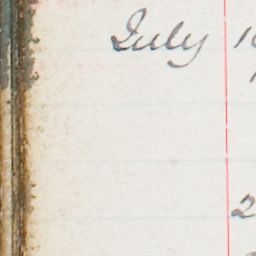 July 1
2